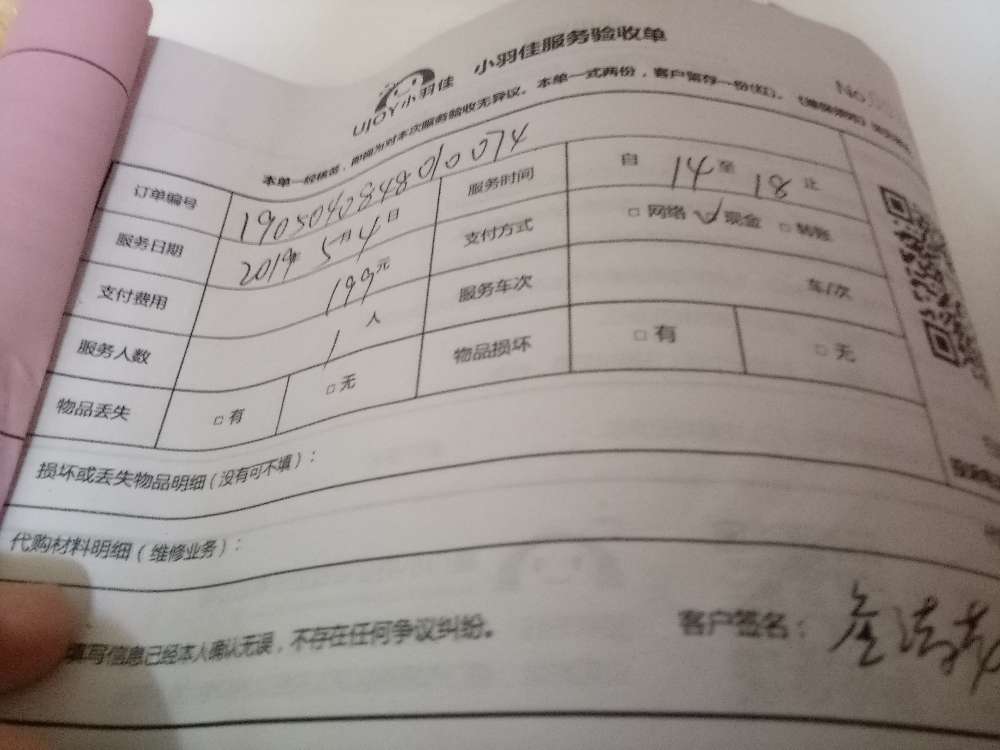 UJOY小羽佳 小羽佳服务验收单
No
本单一经签署，即视为对本次服务验收无异议。本单一式两份，客户留存一份(红)，
订单编号 1905040848010074 服务时间 自 14 至 18 止
服务日期 2019年 5月4日 支付方式 □ 网络 ☑ 现金 □ 转账
支付费用 199元 服务车次 车/次
服务人数 1人 物品损坏 □ 有 □ 无
物品丢失 □ 有 □ 无
损坏或丢失物品明细（没有可不填）：
代购材料明细（维修业务）：
填写信息已经本人确认无误，不存在任何争议纠纷。 客户签名：